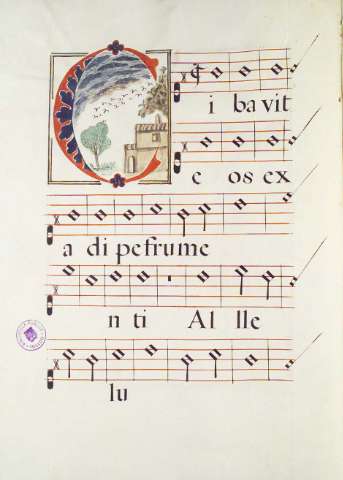 C i ba vit
e os ex
a di pe frume
n ti Al lle
lu